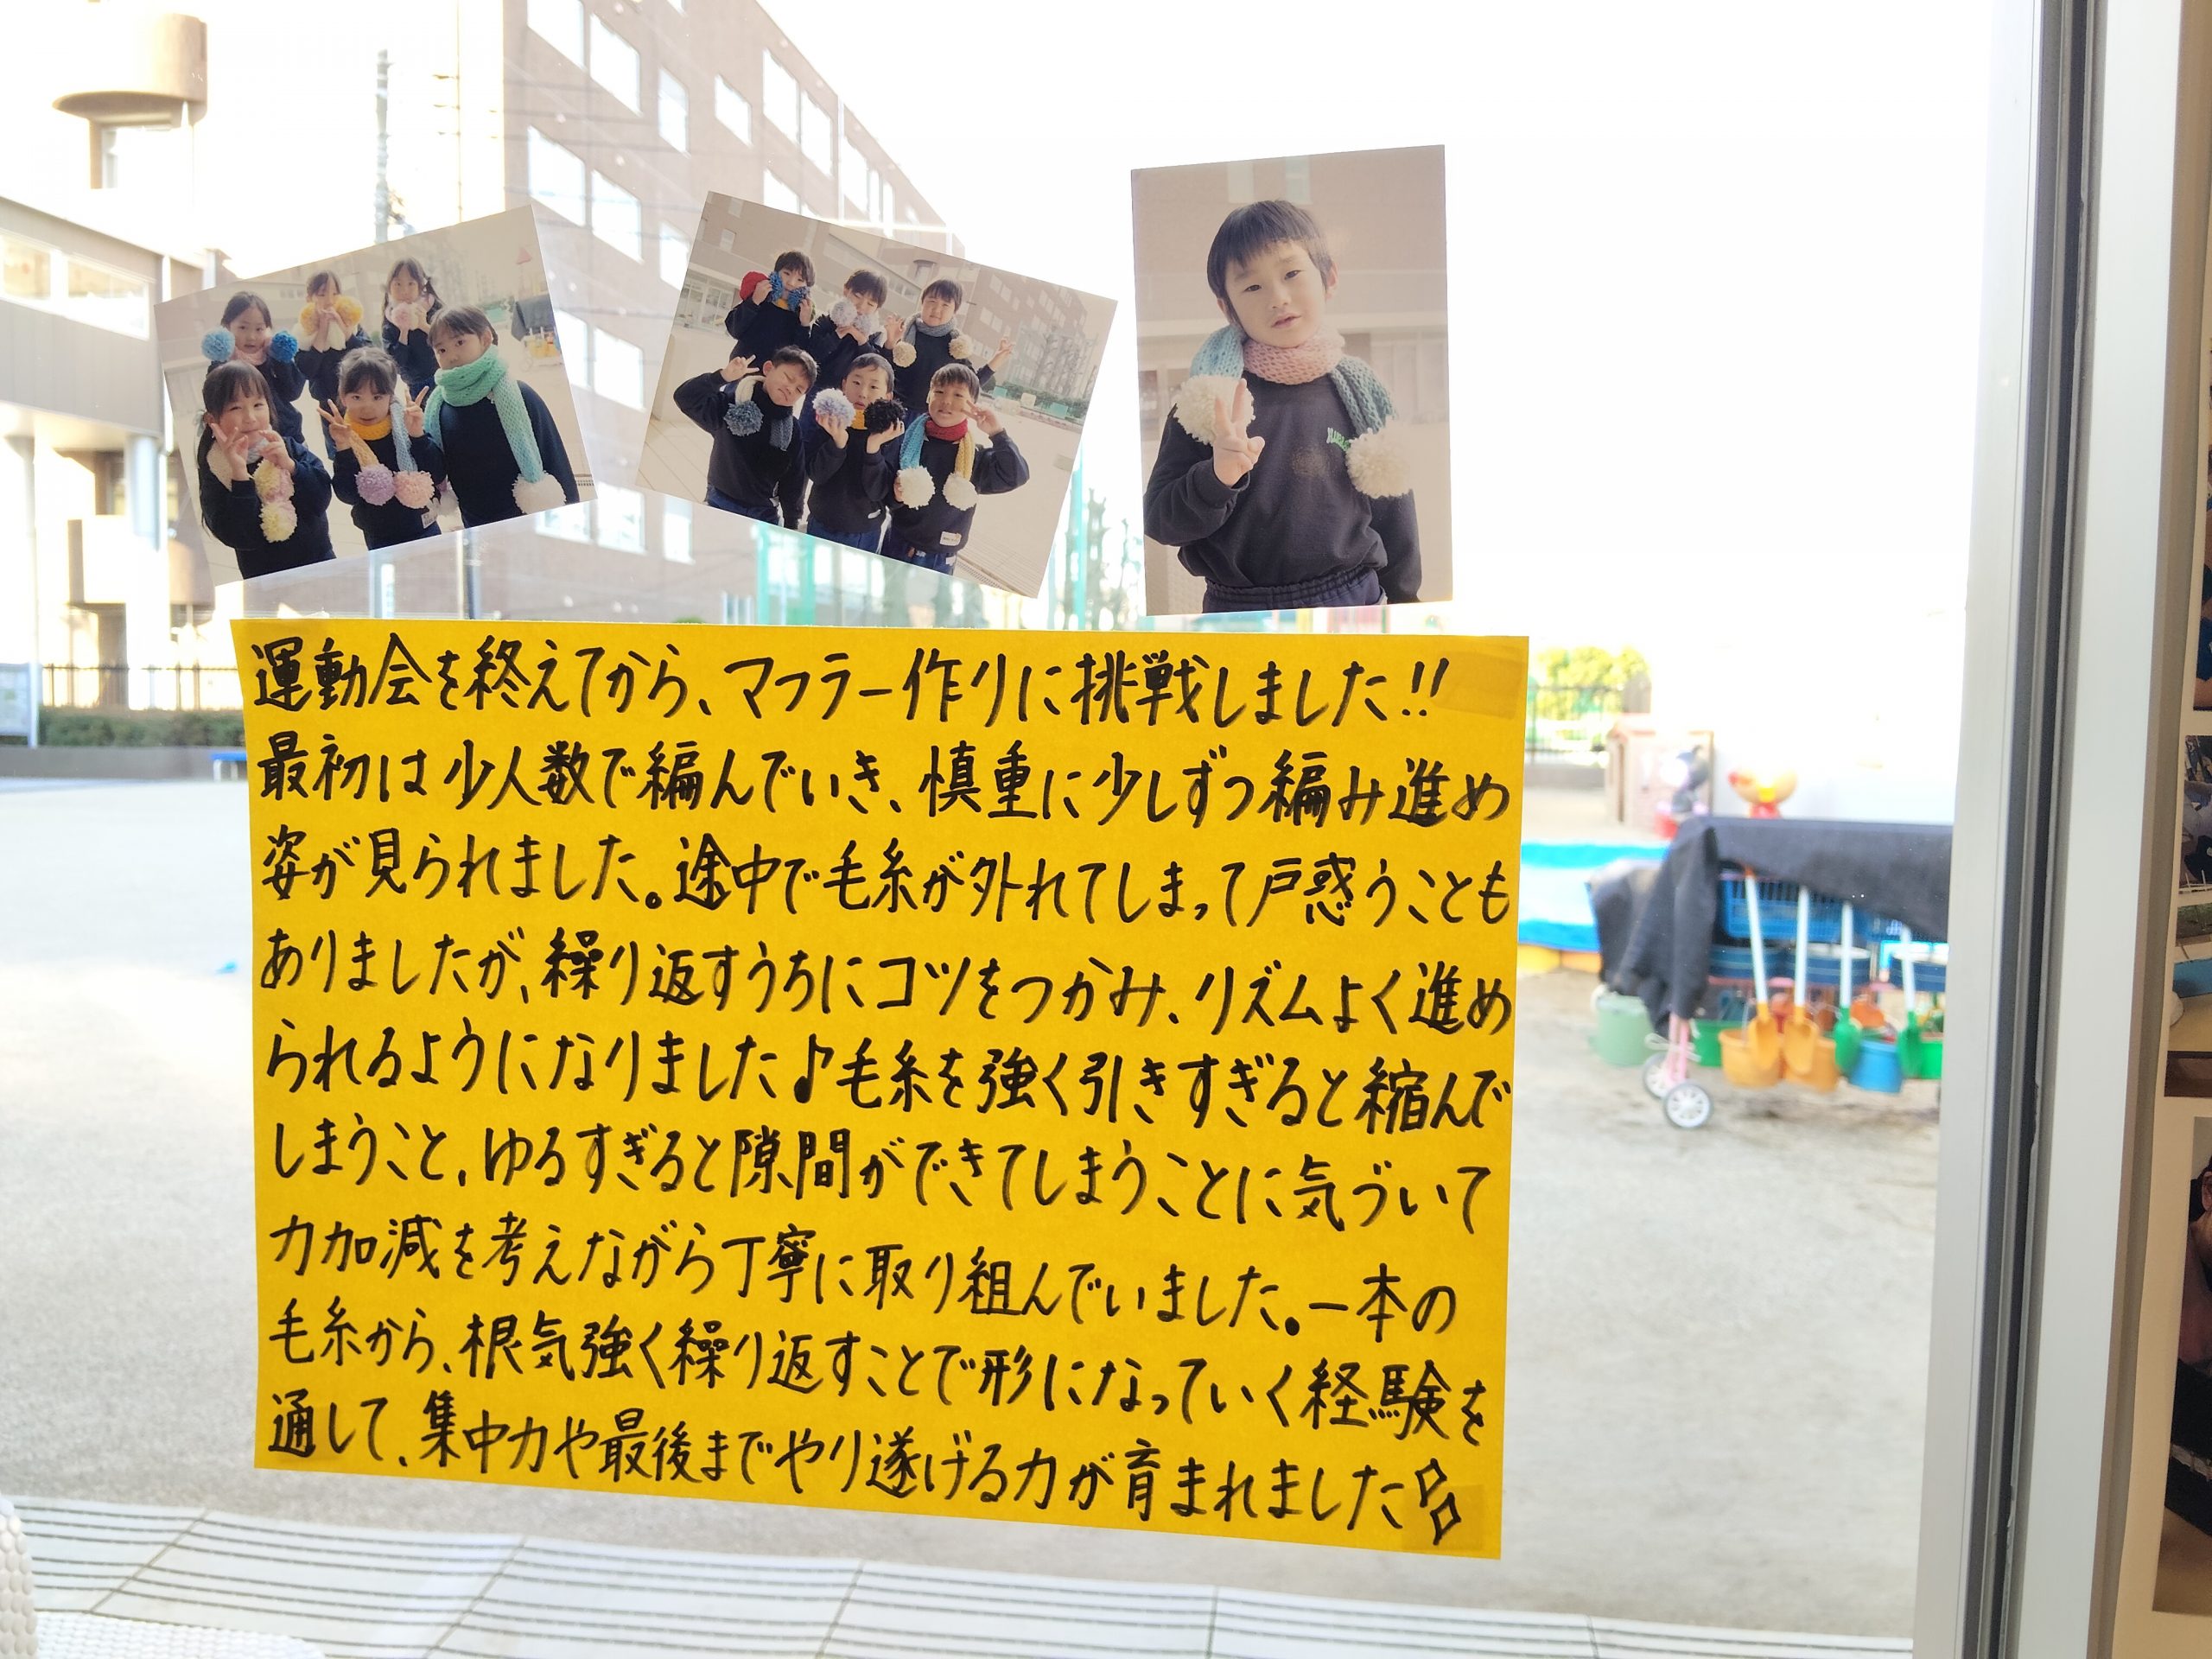 運動会を終えてから、マフラー作りに挑戦しました!!
最初は少人数で編んでいき、慎重に少しずつ編み進め
姿が見られました。途中で毛糸が外れてしまって戸惑うことも
ありましたが、繰り返すうちにコツをつかみ、リズムよく進め
られるようになりました♪毛糸を強く引きすぎると縮んで
しまうこと、ゆるすぎると隙間ができてしまうことに気づいて
力加減を考えながら丁寧に取り組んでいました。一本の
毛糸から、根気強く繰り返すことで形になっていく経験を
通して、集中力や最後までやり遂げる力が育まれました